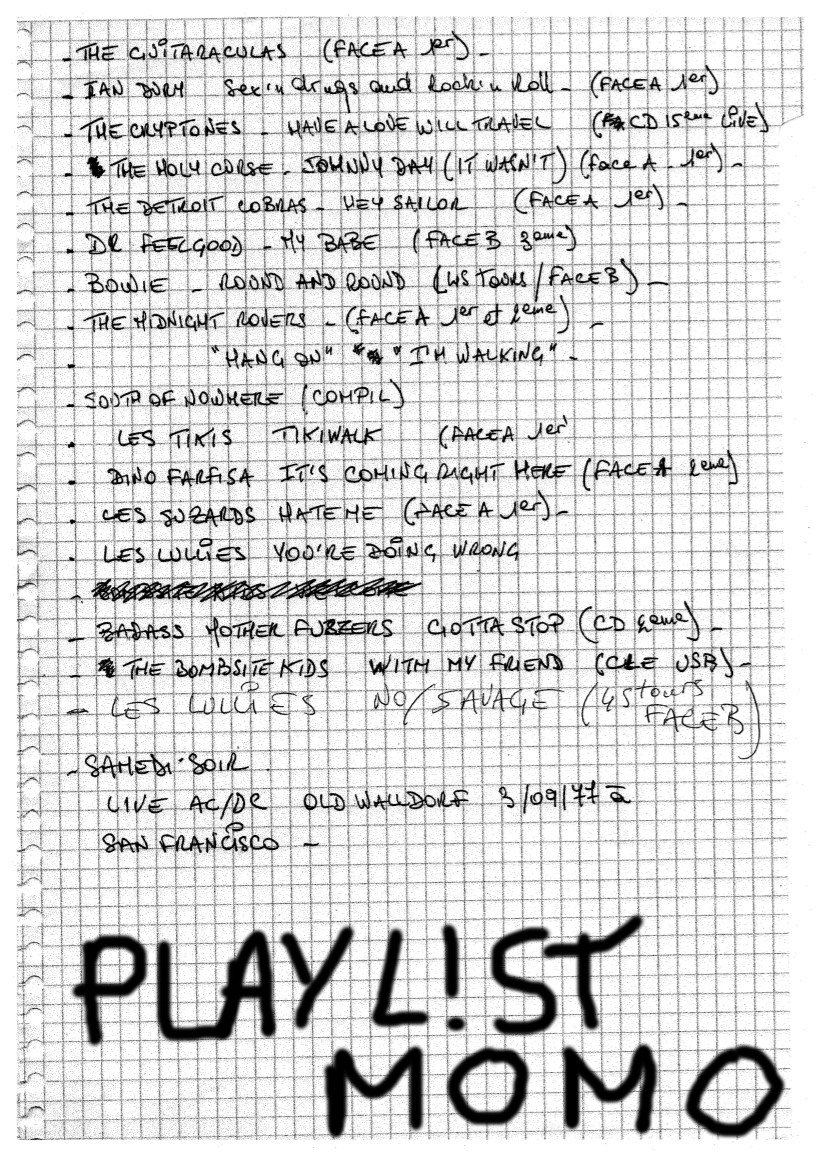 - THE GUITARACULAS (FACE A 1er) -
- IAN DURY Sex'n drugs and Rock'n Roll - (FACE A 1er)
- THE CRYPTONES - HAVE A LOVE WILL TRAVEL (CD 15eme LIVE)
- THE HOLY CURSE - JOHNNY DAY (IT WASN'T) (face A - 1er) -
- THE DETROIT COBRAS - HEY SAILOR (FACE A 1er) -
- DR FEELGOOD - MY BABE (FACE B 3eme)
- BOWIE - ROUND AND ROUND (45 TOURS / FACE B) -
- THE MIDNIGHT ROVERS - (FACE A 1er et 2eme) -
- "HANG ON" "I'M WALKING" -
- SOUTH OF NOWHERE (COMPIL)
- LES TIKIS TIKIWALK (FACE A 1er
- DINO FARFISA IT'S COMING RIGHT HERE (FACE A 2eme)
- LES SUZARDS HATE ME (FACE A 1er) -
- LES LULLIES YOU'RE DOING WRONG
-
- BADASS MOTHER FUZZERS GOTTA STOP (CD 2eme) -
- THE BOMBSITE KIDS WITH MY FRIEND (CLE USB) -
- LES LULLIES NO/SAVAGE (45 tours
FACE B)
- SAMEDI SOIR
LIVE AC/DC OLD WALLDORF 3/09/77 à
SAN FRANCISCO -
PLAYL!ST
MOMO